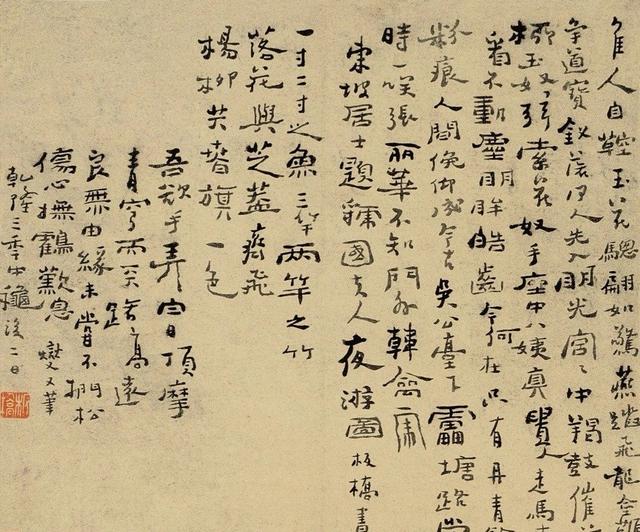 佳人自鞚玉花驄翩如驚燕蹋飛龍金
爭道寶釵落何人先入明光宮〻中羯鼓催
柳玉奴弦索花奴手座中八姨真貴人走馬
看不動塵明眸皓齒今何在只有丹青
粉痕人間俛仰成今古吳公臺下雷塘路當
時一笑張麗華不知門外韓禽虎
東坡居士題虢國夫人夜游圖 板橋書
一寸二寸之魚三竿兩竿之竹
落花與芝蓋齊飛
楊柳共春旗一色
吾欲手弄白日頂摩
青穹而
高遠
良無由緣未嘗不捫松
傷心撫鶴歎息 燮又筆
乾隆三季中穐後二日